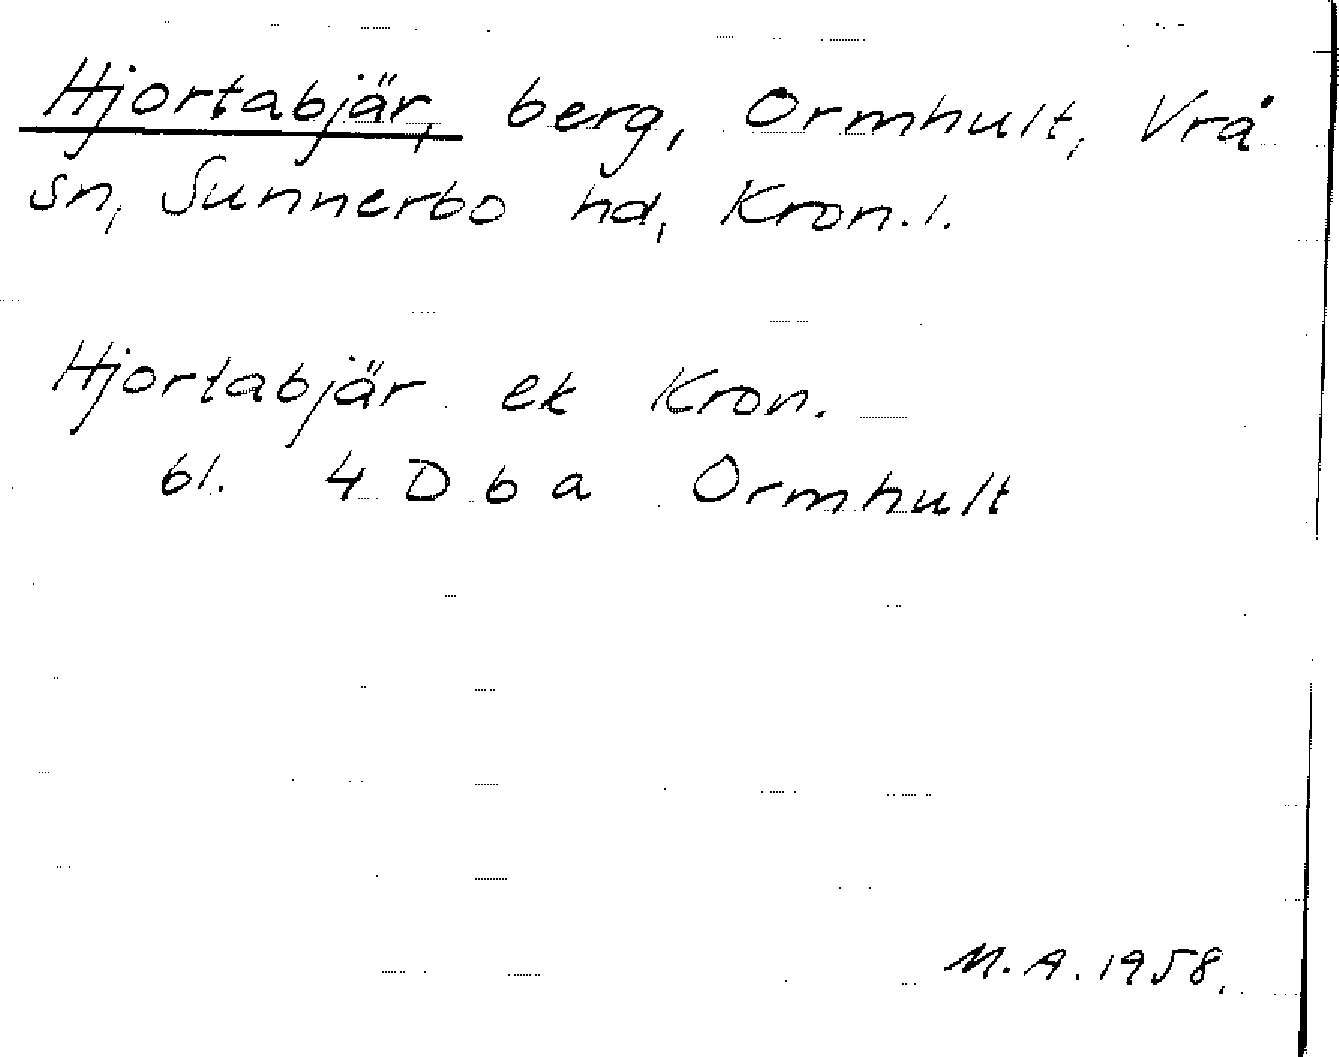 Hjortabjär, berg, Ormhult, Vrå
sn, Sunnerbo hd, Kron. l.
Hjortabjär ek Kron.
bl. 4 D b a Ormhult
M. A. 1958.